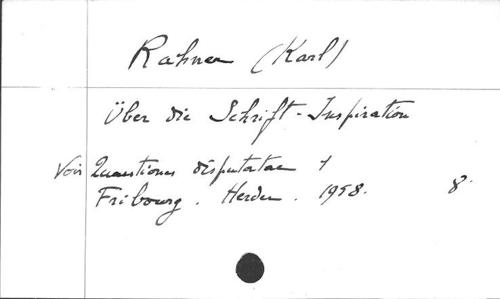 Rahner (Karl)
Über die Schrift-Inspiration
Voir Quaestiones disputatae 1
Fribourg. Herder. 1958. 8°